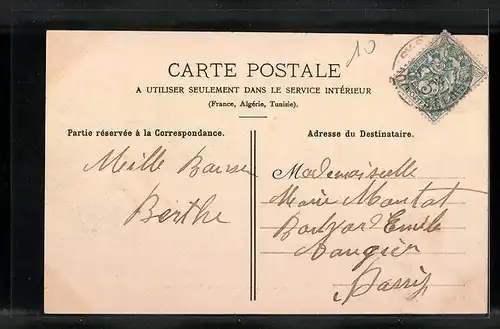 10
CARTE POSTALE
A UTILISER SEULEMENT DANS LE SERVICE INTÉRIEUR
(France, Algérie, Tunisie).
Partie réservée à la Correspondance.
Adresse du Destinataire.
Meille Baiser
Berthe
Mademoiselle
Marie Montat
Boulvard Emile
Aaugier
Passy